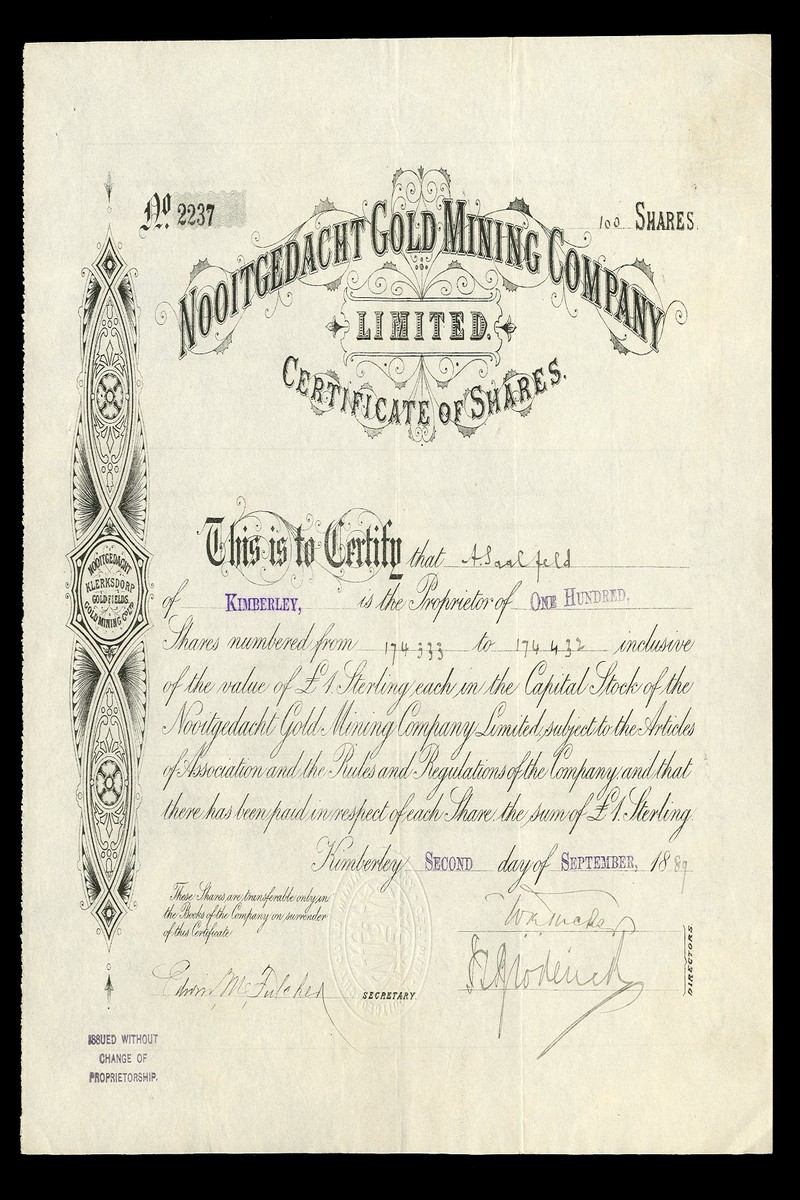 No. 2237
100 SHARES.
NOOITGEDACHT GOLD MINING COMPANY
LIMITED.
CERTIFICATE OF SHARES.
This is to Certify that A. Saalfeld
of KIMBERLEY, is the Proprietor of ONE HUNDRED.
Shares numbered from 174333 to 174432 inclusive
of the value of £1. Sterling each in the Capital Stock of the
Nooitgedacht Gold Mining Company Limited, subject to the Articles
of Association and the Rules and Regulations of the Company, and that
there has been paid in respect of each Share the sum of £1. Sterling.
Kimberley SECOND day of SEPTEMBER, 1889
NOOITGEDACHT
KLERKSDORP
GOLDFIELDS.
GOLD MINING COY LD
These Shares are transferable only in
the Books of the Company on surrender
of this Certificate
DIRECTORS.
Edwin McFulcher SECRETARY.
ISSUED WITHOUT
CHANGE OF
PROPRIETORSHIP.